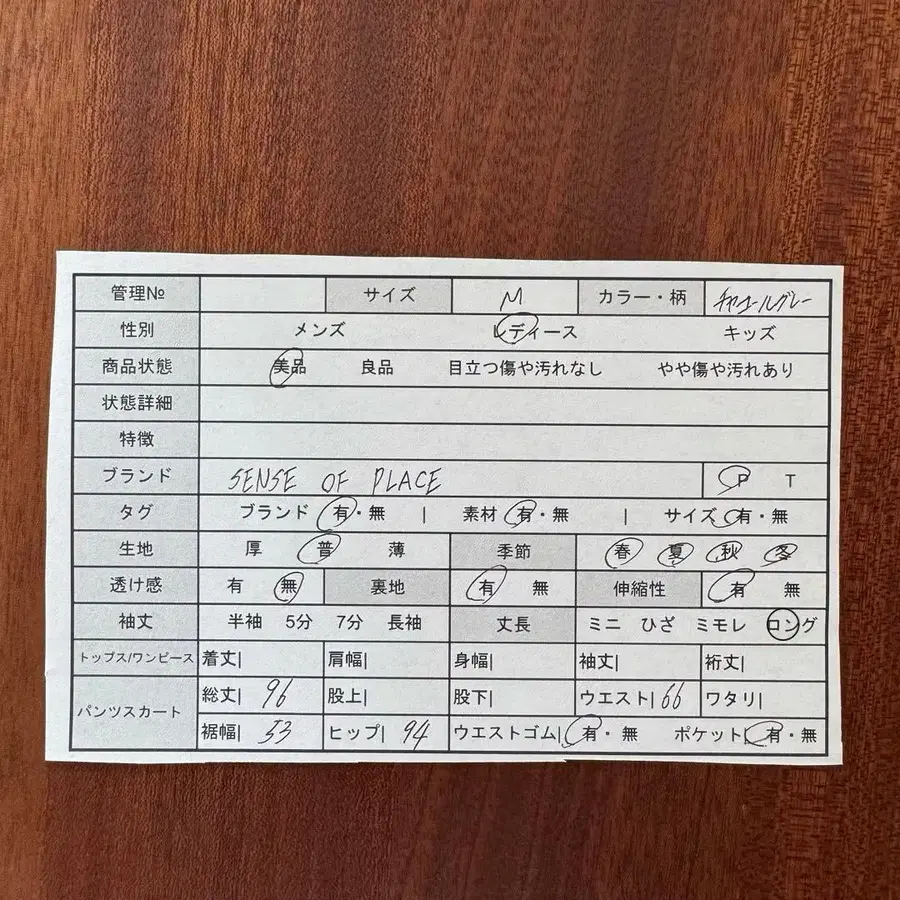 管理№ サイズ M カラー・柄 チャコールグレー
性別 メンズ レディース キッズ
商品状態 美品 良品 目立つ傷や汚れなし やや傷や汚れあり
状態詳細
特徴
ブランド SENSE OF PLACE P T
タグ ブランド 有・無 | 素材 有・無 | サイズ 有・無
生地 厚 普 薄 季節 春 夏 秋 冬
透け感 有 無 裏地 有 無 伸縮性 有 無
袖丈 半袖 5分 7分 長袖 丈長 ミニ ひざ ミモレ ロング
トップス/ワンピース 着丈| 肩幅| 身幅| 袖丈| 裄丈|
パンツスカート 総丈| 96 股上| 股下| ウエスト| 66 ワタリ|
裾幅| 53 ヒップ| 94 ウエストゴム| 有・無 ポケット| 有・無